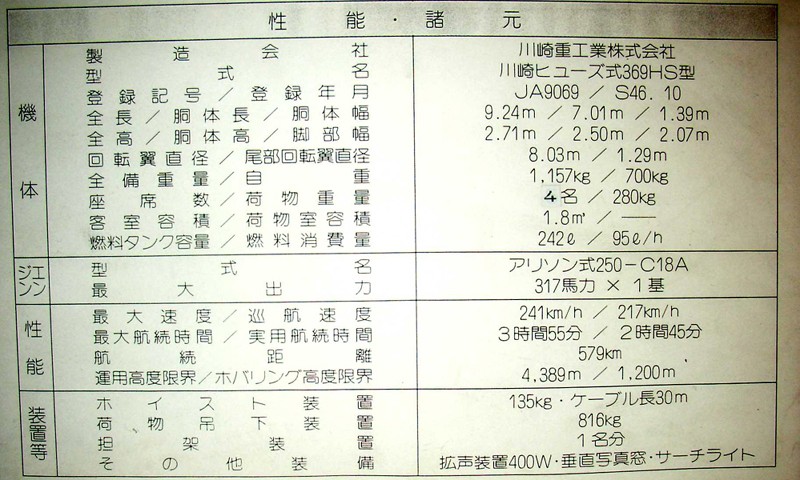 性能・諸元
機体
製造会社 川崎重工業株式会社
型式名 川崎ヒューズ式369HS型
登録記号／登録年月 JA9069／S46.10
全長／胴体長／胴体幅 9.24m／7.01m／1.39m
全高／胴体高／脚部幅 2.71m／2.50m／2.07m
回転翼直径／尾部回転翼直径 8.03m／1.29m
全備重量／自重 1,157kg／700kg
座席数／荷物重量 4名／280kg
客室容積／荷物室容積 1.8㎥／――
燃料タンク容量／燃料消費量 242ℓ／95ℓ/h
エンジン
型式名 アリソン式250－C18A
最大出力 317馬力×1基
性能
最大速度／巡航速度 241km/h／217km/h
最大航続時間／実用航続時間 3時間55分／2時間45分
航続距離 579km
運用高度限界／ホバリング高度限界 4,389m／1,200m
装置等
ホイスト装置 135kg・ケーブル長30m
荷物吊下装置 816kg
担架装置 1名分
その他装備 拡声装置400W・垂直写真窓・サーチライト